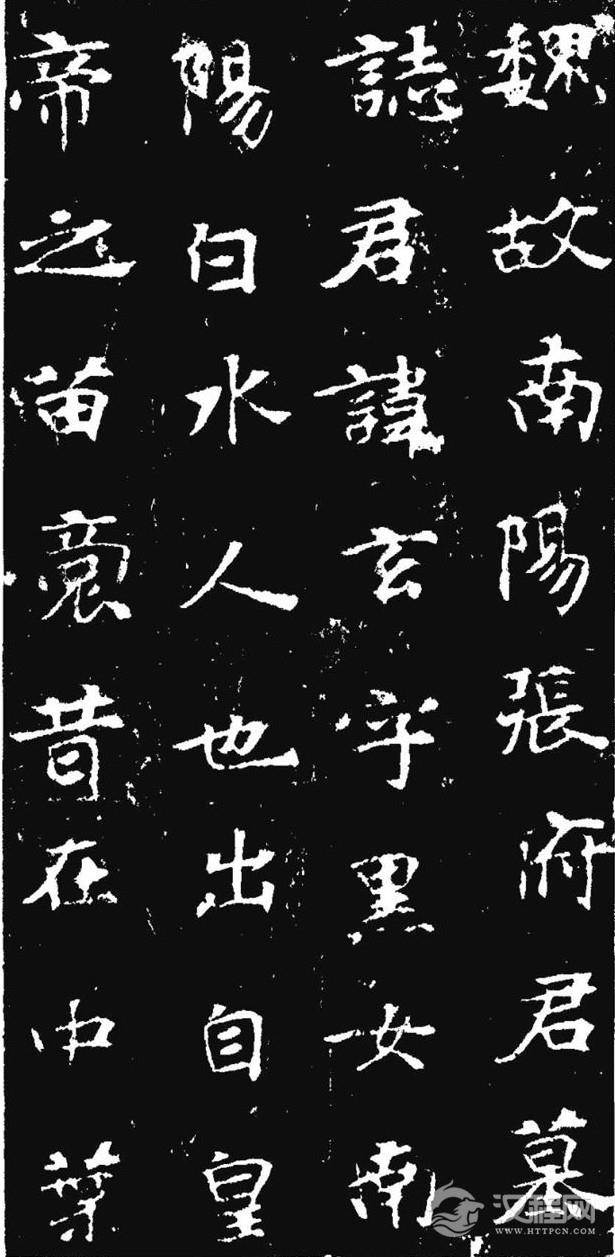 魏故南陽張府君墓
誌君諱玄字黑女南
陽白水人也出自皇
帝之苗裔昔在中葉
汉程网
WWW.HTTPCN.COM